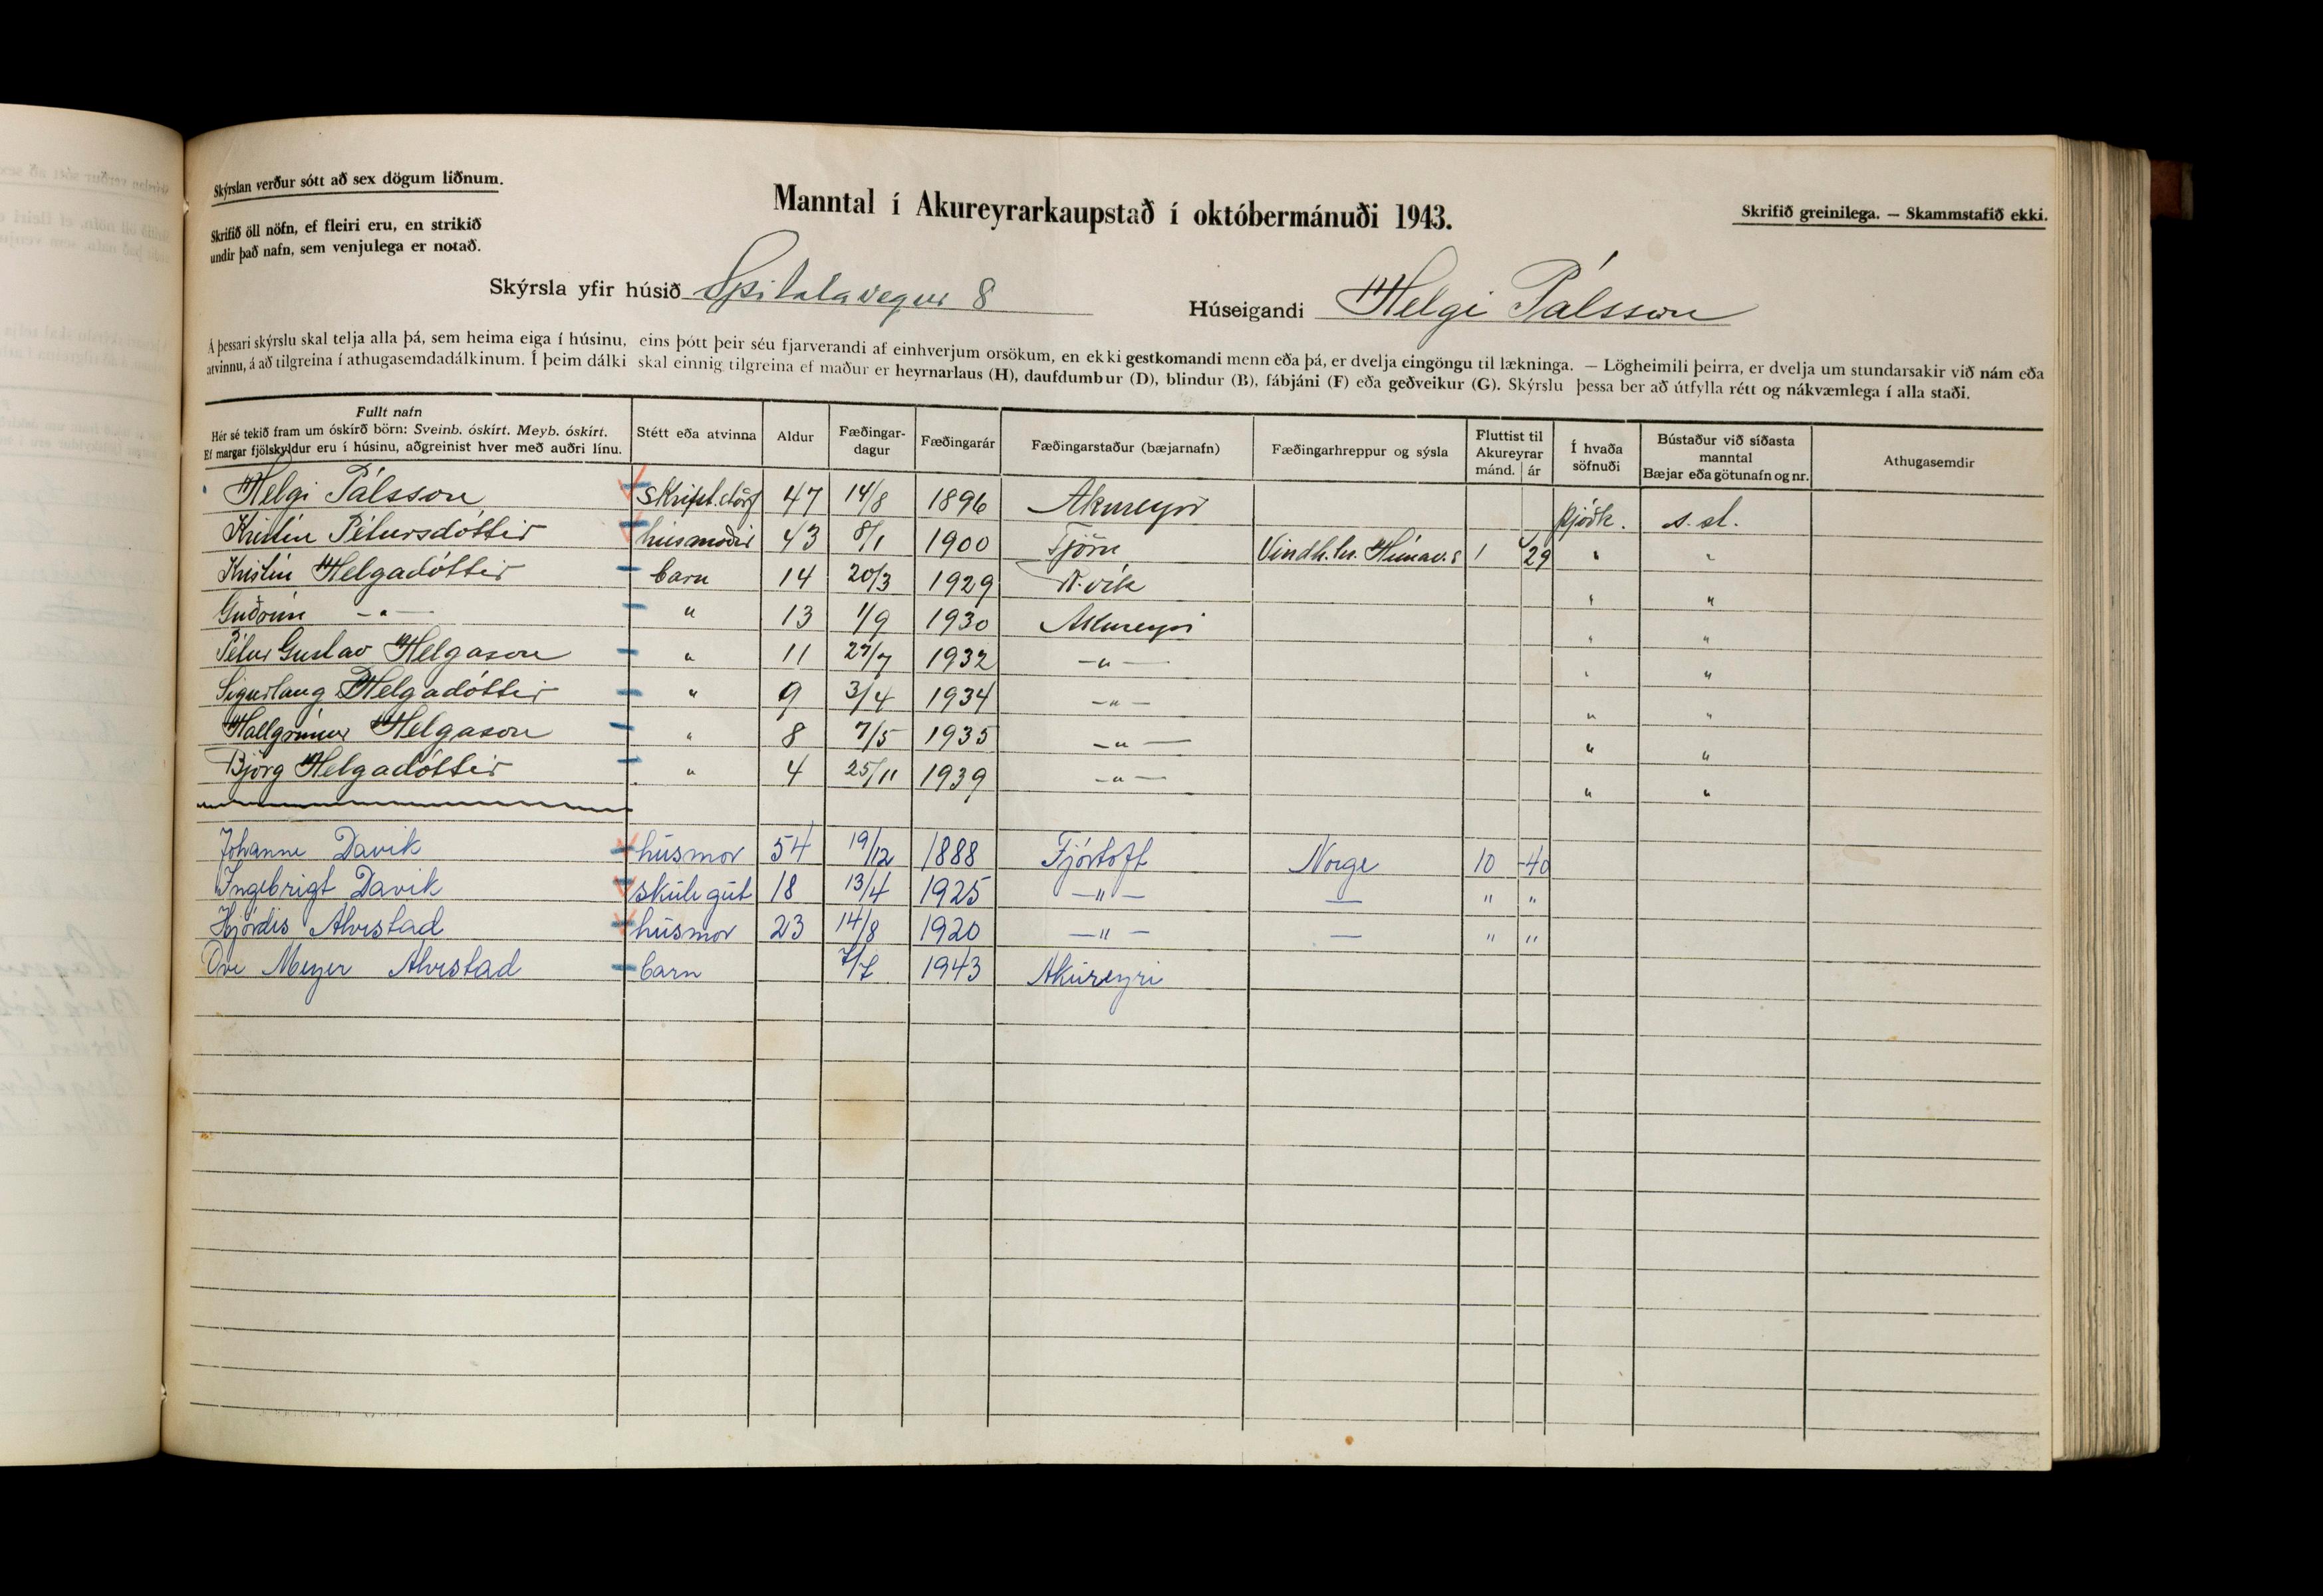 Skýrslan verður sótt að sex dögum liðnum.
Skrifið öll nöfn, ef fleiri eru, en strikið
undir það nafn, sem venjulega er notað.
Manntal í Akureyrarkaupstað í októbermánuði 1943.
Skrifið greinilega. — Skammstafið ekki.
Skýrsla yfir húsið Spitalavegur 8
Húseigandi Helgi Pálsson
Á þessari skýrslu skal telja alla þá, sem heima eiga í húsinu, eins þótt þeir séu fjarverandi af einhverjum orsökum, en ekki gestkomandi menn eða þá, er dvelja eingöngu til lækninga. — Lögheimili þeirra, er dvelja um stundarsakir við nám eða
atvinnu, á að tilgreina í athugasemdadálkinum. Í þeim dálki skal einnig tilgreina ef maður er heyrnarlaus (H), daufdumbur (D), blindur (B), fábjáni (F) eða geðveikur (G). Skýrslu þessa ber að útfylla rétt og nákvæmlega í alla staði.
Fullt nafn
Hér sé tekið fram um óskírð börn: Sveinb. óskírt. Meyb. óskírt.
Ef margar fjölskyldur eru í húsinu, aðgreinist hver með auðri línu.
Stétt eða atvinna
Aldur
Fæðingar-
dagur
Fæðingarár
Fæðingarstaður (bæjarnafn)
Fæðingarhreppur og sýsla
Fluttist til
Akureyrar
mánd. ár
Í hvaða
söfnuði
Bústaður við síðasta
manntal
Bæjar eða götunafn og nr.
Athugasemdir
Helgi Pálsson 47 14/8 1896 Akureyri þjóðk. s. st.
Kristín Pétursdóttir húsmóðir 43 8/1 1900 Tjörn Vindh.hr. Húnav.s 1 29 " "
Kristín Helgadóttir barn 14 20/3 1929 R.vík " "
Guðrún -"- " 13 1/9 1930 Akureyri " "
Pétur Gustav Helgason " 11 27/7 1932 -"- " "
Sigurlaug Helgadóttir " 9 3/4 1934 -"- " "
Hallgrímur Helgason " 8 7/5 1935 -"- " "
Björg Helgadóttir " 4 25/11 1939 -"- " "
Johanne Davik húsmor 54 19/12 1888 Fjörtoft Norge 10 -40
Ingebrigt Davik skúlegút 18 13/4 1925 -"- — " "
Hjördis Alvestad húsmor 23 14/8 1920 -"- — " "
Ove Meyer Alvestad barn 7/7 1943 Akúreyri